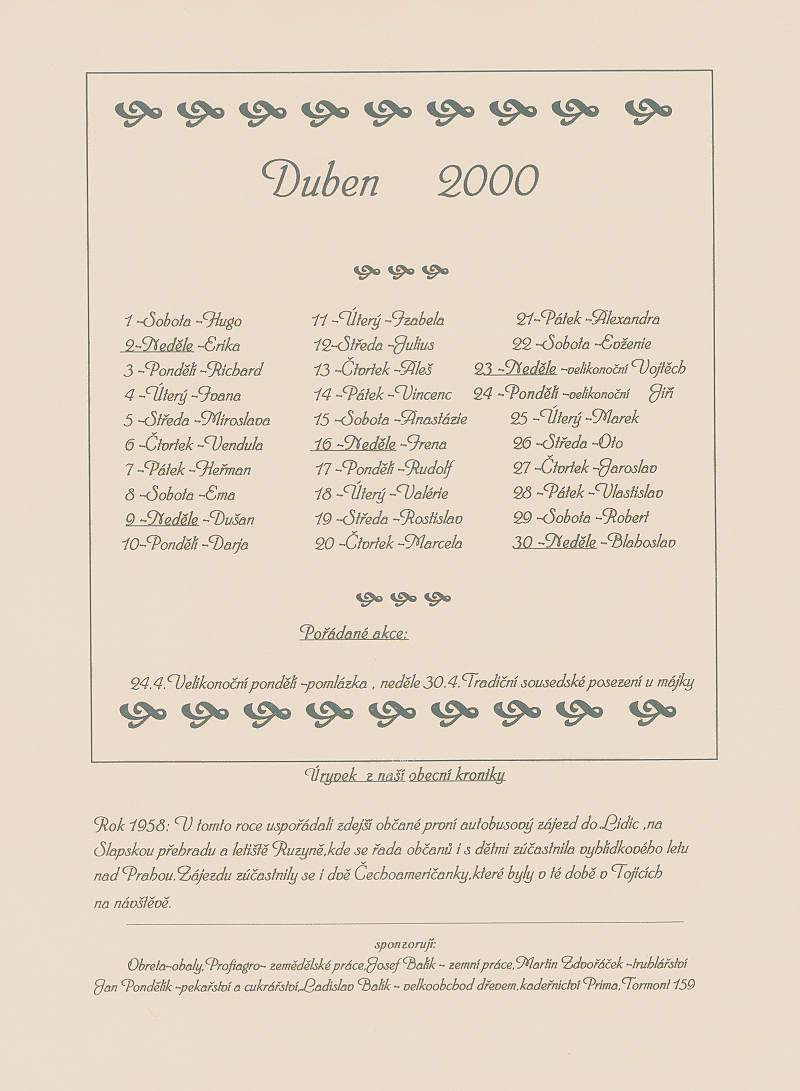 Duben 2000
1 -Sobota -Hugo
2-Neděle -Erika
3 -Pondělí -Richard
4 -Úterý -Ivana
5 -Středa -Miroslava
6 -Čtvrtek -Vendula
7 -Pátek -Heřman
8 -Sobota -Ema
9 -Neděle -Dušan
10-Pondělí -Darja
11 -Úterý -Izabela
12-Středa -Julius
13 -Čtvrtek -Aleš
14 -Pátek -Vincenc
15 -Sobota -Anastázie
16 -Neděle -Irena
17 -Pondělí -Rudolf
18 -Úterý -Valérie
19 -Středa -Rostislav
20 -Čtvrtek -Marcela
21-Pátek -Alexandra
22 -Sobota -Evženie
23 -Neděle -velikonoční Vojtěch
24 -Pondělí -velikonoční Jiří
25 -Úterý -Marek
26 -Středa -Oto
27 -Čtvrtek -Jaroslav
28 -Pátek -Vlastislav
29 -Sobota -Robert
30 -Neděle -Blahoslav
Pořádané akce:
24.4.Velikonoční pondělí -pomlázka , neděle 30.4.Tradiční sousedské posezení u májky
Úryvek z naší obecní kroniky
Rok 1958: V tomto roce uspořádali zdejší občané první autobusový zájezd do Lidic ,na
Slapskou přehradu a letiště Ruzyně,kde se řada občanů i s dětmi zúčastnila vyhlídkového letu
nad Prahou.Zájezdu zúčastnily se i dvě Čechoameričanky,které byly v té době v Tojicích
na návštěvě.
sponzorují:
Obreta-obaly,Profiagro- zemědělské práce,Josef Balík - zemní práce,Martin Zdvořáček -truhlářství
Jan Pondělík -pekařství a cukrářství,Ladislav Balík - velkoobchod dřevem,kadeřnictví Prima,Tormont 159